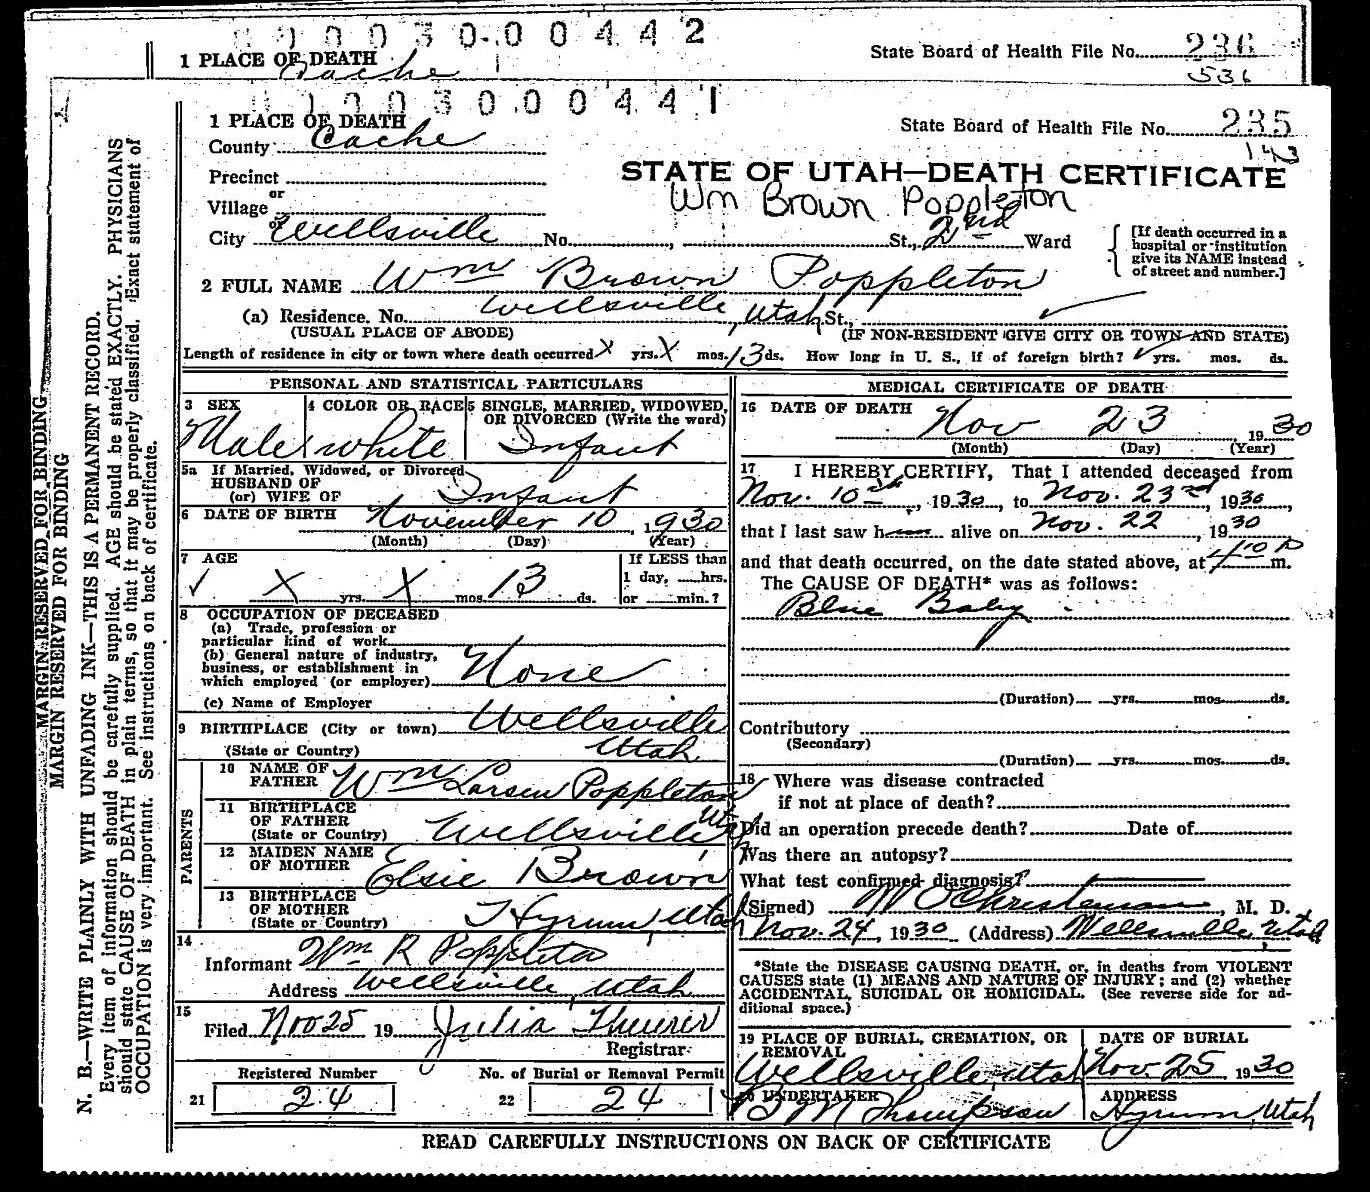 010030-00442
1 PLACE OF DEATH
Cache
State Board of Health File No. 236
536
010030-00441
1 PLACE OF DEATH
State Board of Health File No. 235
143
County Cache
STATE OF UTAH—DEATH CERTIFICATE
Precinct
Wm Brown Poppleton
or
Village
or
City Wellsville No. , St., 2nd Ward
[If death occurred in a
hospital or institution
give its NAME instead
of street and number.]
2 FULL NAME Wm Brown Poppleton
(a) Residence. No. Wellsville, Utah St.,
(USUAL PLACE OF ABODE) (IF NON-RESIDENT GIVE CITY OR TOWN AND STATE)
Length of residence in city or town where death occurred X yrs. X mos. 13 ds. How long in U. S., if of foreign birth? ✓ yrs. mos. ds.
PERSONAL AND STATISTICAL PARTICULARS
3 SEX 4 COLOR OR RACE 5 SINGLE, MARRIED, WIDOWED,
OR DIVORCED (Write the word)
Male white Infant
5a If Married, Widowed, or Divorced
HUSBAND OF
(or) WIFE OF Infant
6 DATE OF BIRTH November 10, 1930
(Month) (Day) (Year)
7 AGE If LESS than
1 day, hrs.
✓ X yrs. X mos. 13 ds. or min.?
8 OCCUPATION OF DECEASED
(a) Trade, profession or
particular kind of work
(b) General nature of industry,
business, or establishment in
which employed (or employer) None
(c) Name of Employer
9 BIRTHPLACE (City or town) Wellsville
(State or Country) Utah
PARENTS
10 NAME OF
FATHER Wm Larsen Poppleton
11 BIRTHPLACE
OF FATHER
(State or Country) Wellsville Utah
12 MAIDEN NAME
OF MOTHER Elsie Brown
13 BIRTHPLACE
OF MOTHER
(State or Country) Hyrum, Utah
14
Informant Wm R Poppleton
Address Wellsville, Utah
15
Filed Nov 25 19 Julia Theurer
Registrar
Registered Number No. of Burial or Removal Permit
21 24 22 24
MEDICAL CERTIFICATE OF DEATH
16 DATE OF DEATH Nov 23 1930
(Month) (Day) (Year)
17 I HEREBY CERTIFY, That I attended deceased from
Nov. 10th, 1930, to Nov. 23rd, 1930,
that I last saw h alive on Nov. 22, 1930
and that death occurred, on the date stated above, at 4:10 P m.
The CAUSE OF DEATH* was as follows:
Blue Baby
(Duration) yrs. mos. ds.
Contributory
(Secondary)
(Duration) yrs. mos. ds.
18 Where was disease contracted
if not at place of death?
Did an operation precede death? Date of
Was there an autopsy?
What test confirmed diagnosis?
(Signed) M O Christensen, M. D.
Nov. 24, 1930 (Address) Wellsville, Utah
*State the DISEASE CAUSING DEATH, or, in deaths from VIOLENT
CAUSES state (1) MEANS AND NATURE OF INJURY; and (2) whether
ACCIDENTAL, SUICIDAL OR HOMICIDAL. (See reverse side for ad-
ditional space.)
19 PLACE OF BURIAL, CREMATION, OR
REMOVAL
Wellsville, Utah
DATE OF BURIAL
Nov. 25 1930
20 UNDERTAKER
B M Thompson
ADDRESS
Hyrum, Utah
READ CAREFULLY INSTRUCTIONS ON BACK OF CERTIFICATE
MARGIN RESERVED FOR BINDING
MARGIN RESERVED FOR BINDING
N. B.—WRITE PLAINLY WITH UNFADING INK—THIS IS A PERMANENT RECORD.
Every item of information should be carefully supplied. AGE should be stated EXACTLY. PHYSICIANS
should state CAUSE OF DEATH in plain terms, so that it may be properly classified. Exact statement of
OCCUPATION is very important. See instructions on back of certificate.